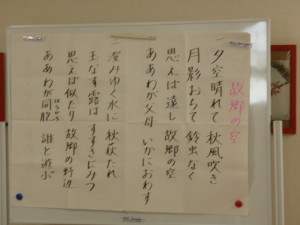 故郷の空
一 夕空晴れて 秋風吹き
月影おちて 鈴虫なく
思えば遠し 故郷の空
ああわが父母 いかにおわす
二 澄みゆく水に 秋萩たれ
玉なす露は すすきにみつ
思えば似たり 故郷の野辺
ああわが同胞 誰と遊ぶ